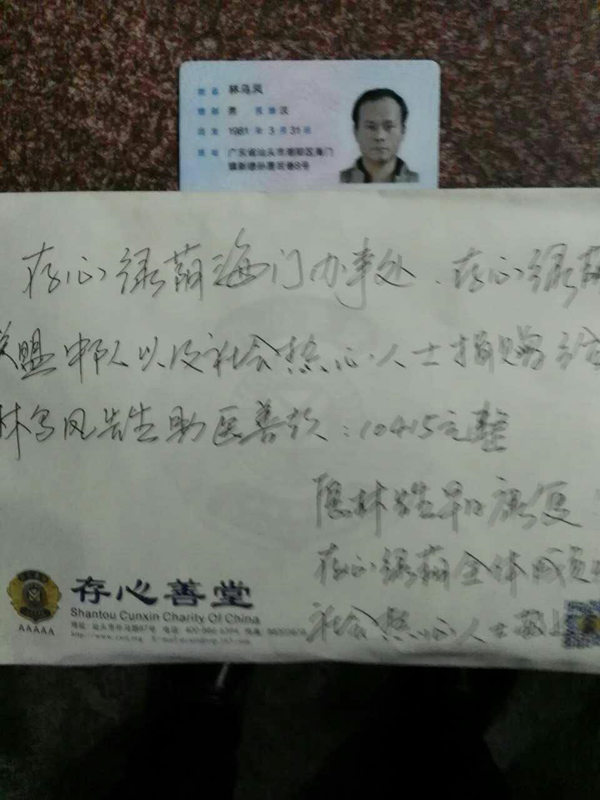 姓名 林乌凤
性别 男 民族 汉
出生 1981 年 3 月 31 日
住址 广东省汕头市潮阳区海门
镇新德孙厝前巷8号
存心绿萌海门办事处、存心绿萌
联盟中队以及社会热心人士捐赠给
林乌凤先生助医善款：10415元整
愿林先生早日康复
存心绿萌全体成员
社会热心人士敬上
存心善堂
Shantou Cunxin Charity Of China
AAAAA